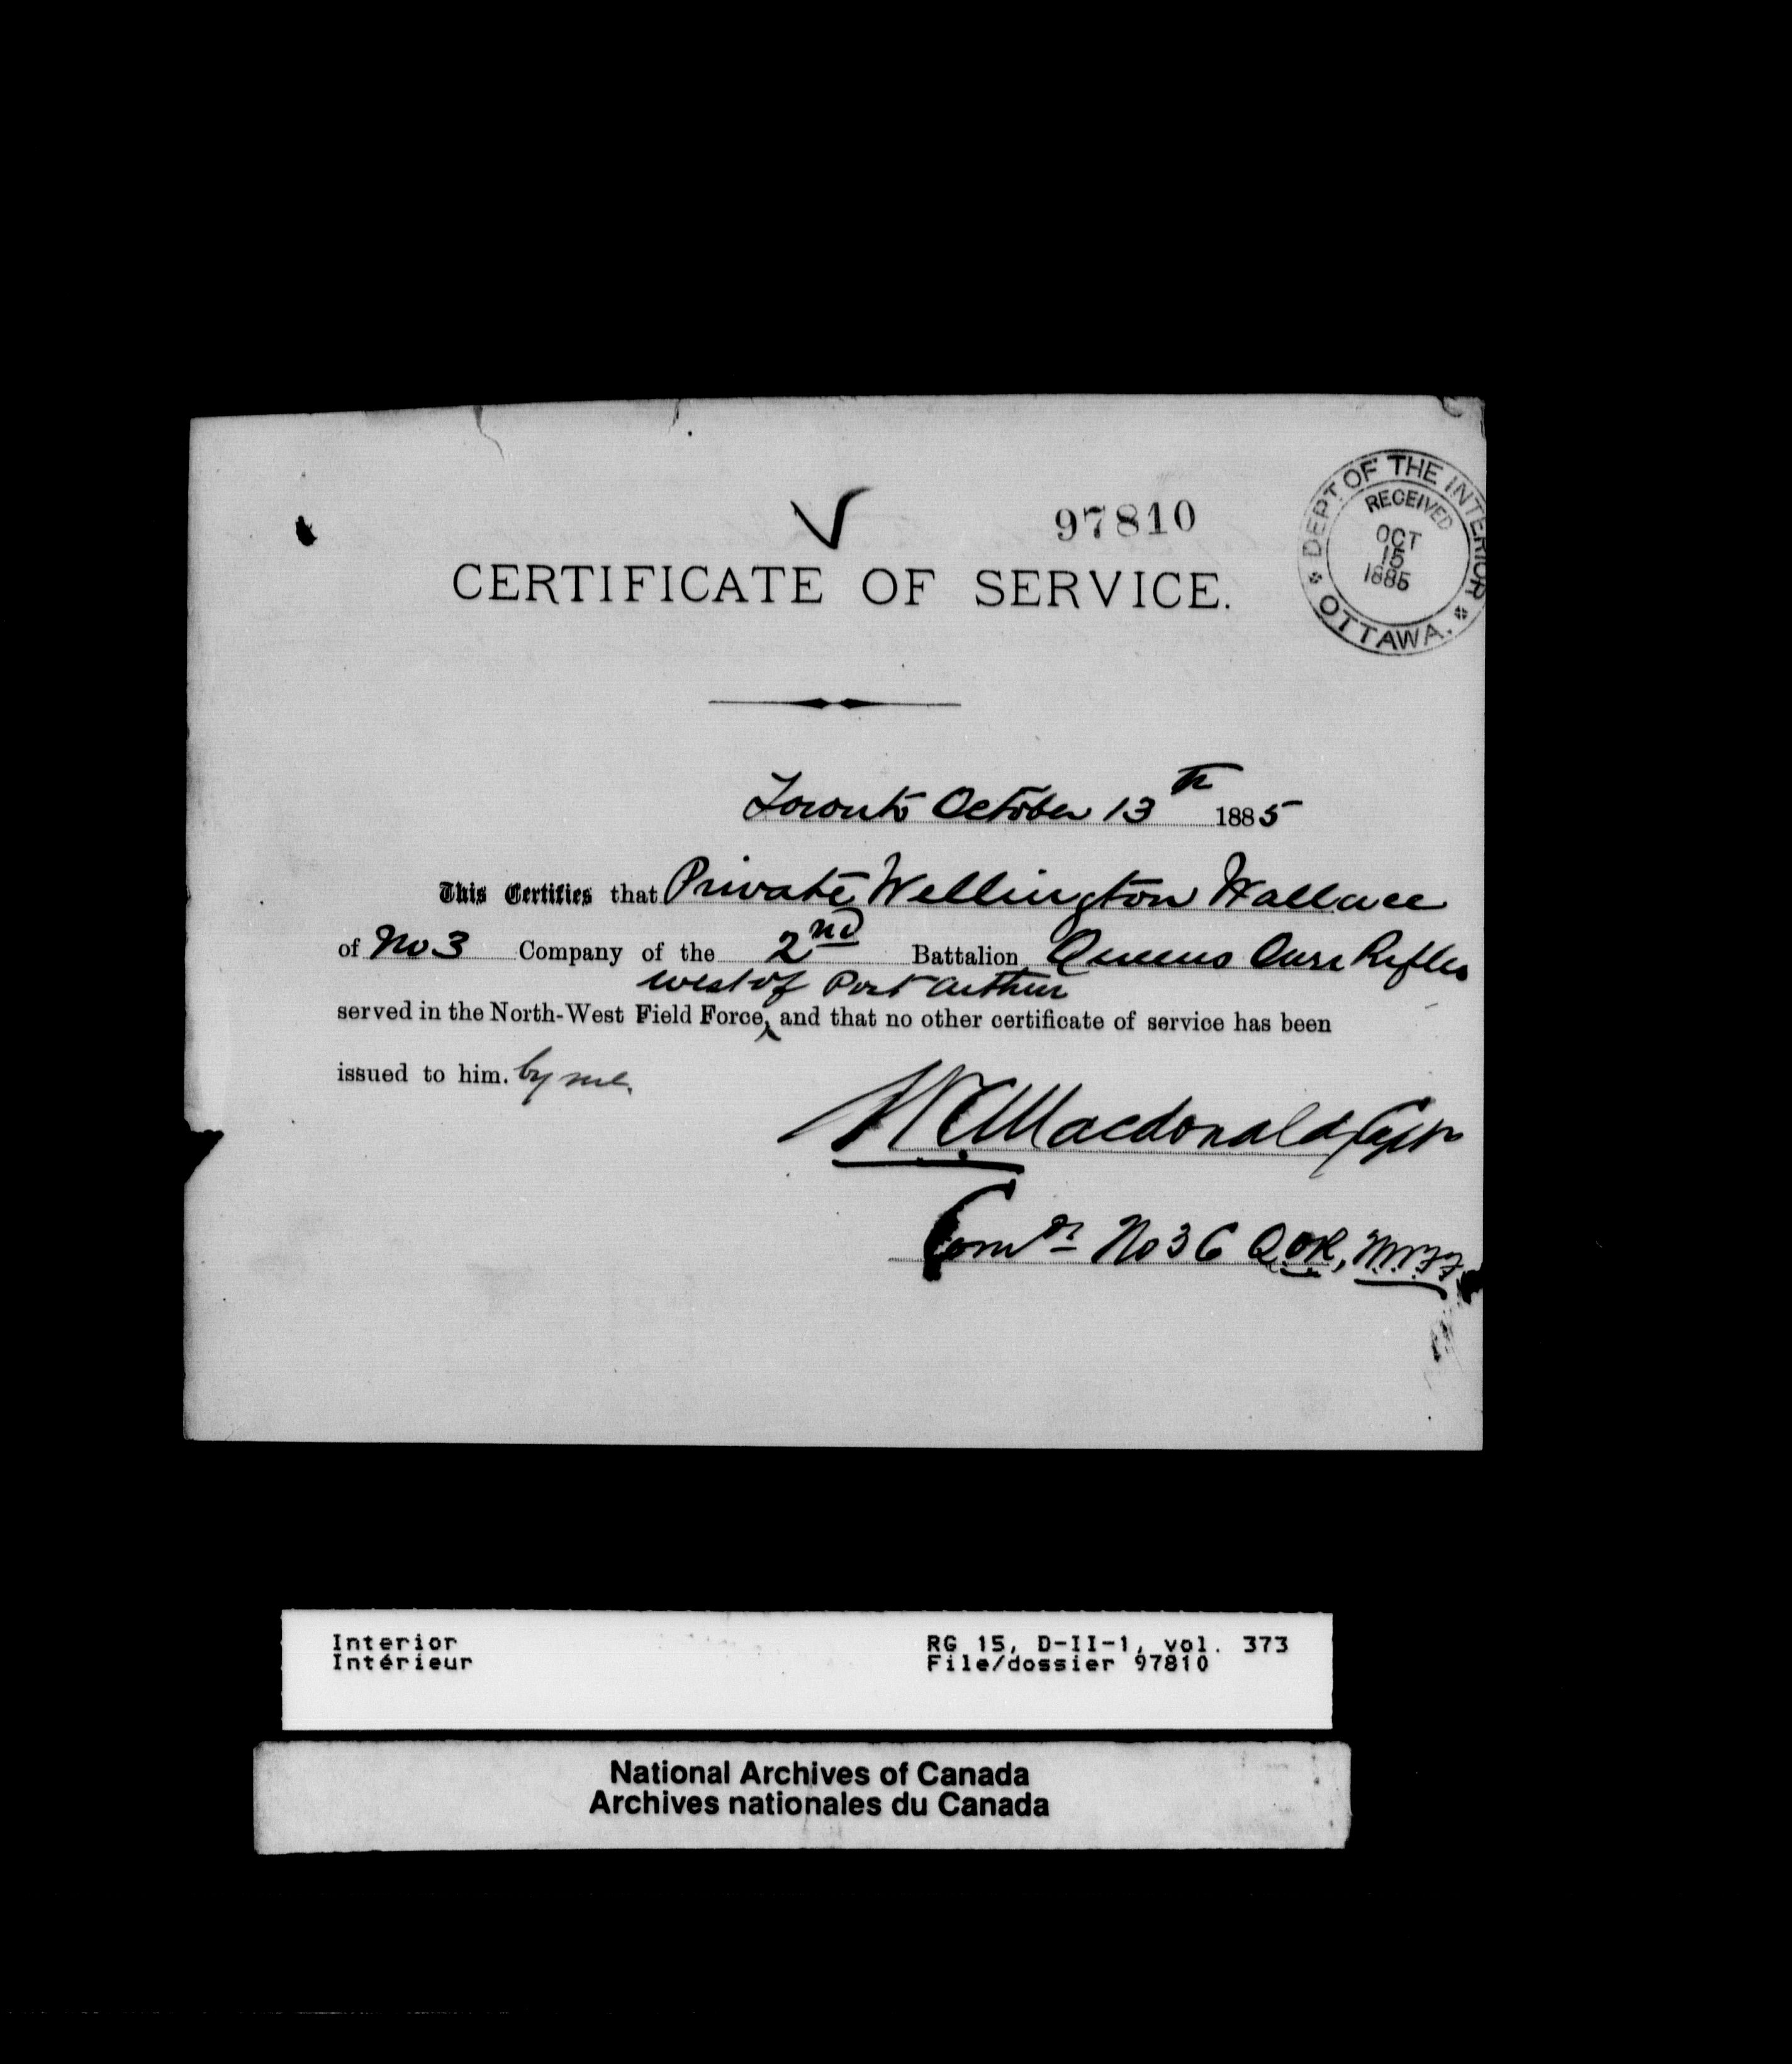 97810
DEPT. OF THE INTERIOR
RECEIVED
OCT
15
1885
OTTAWA.
CERTIFICATE OF SERVICE.
Toronto October 13th 1885
This Certifies that Private Wellington Wallace
of No 3 Company of the 2nd Battalion Queens Own Rifles
west of Port Arthur
served in the North-West Field Force, and that no other certificate of service has been
issued to him. by me.
Macdonald Capt
Comdr No 3 C Q.O.R, N.W.F.F.
Interior
Intérieur
RG 15, D-II-1, vol. 373
File/dossier 97810
National Archives of Canada
Archives nationales du Canada